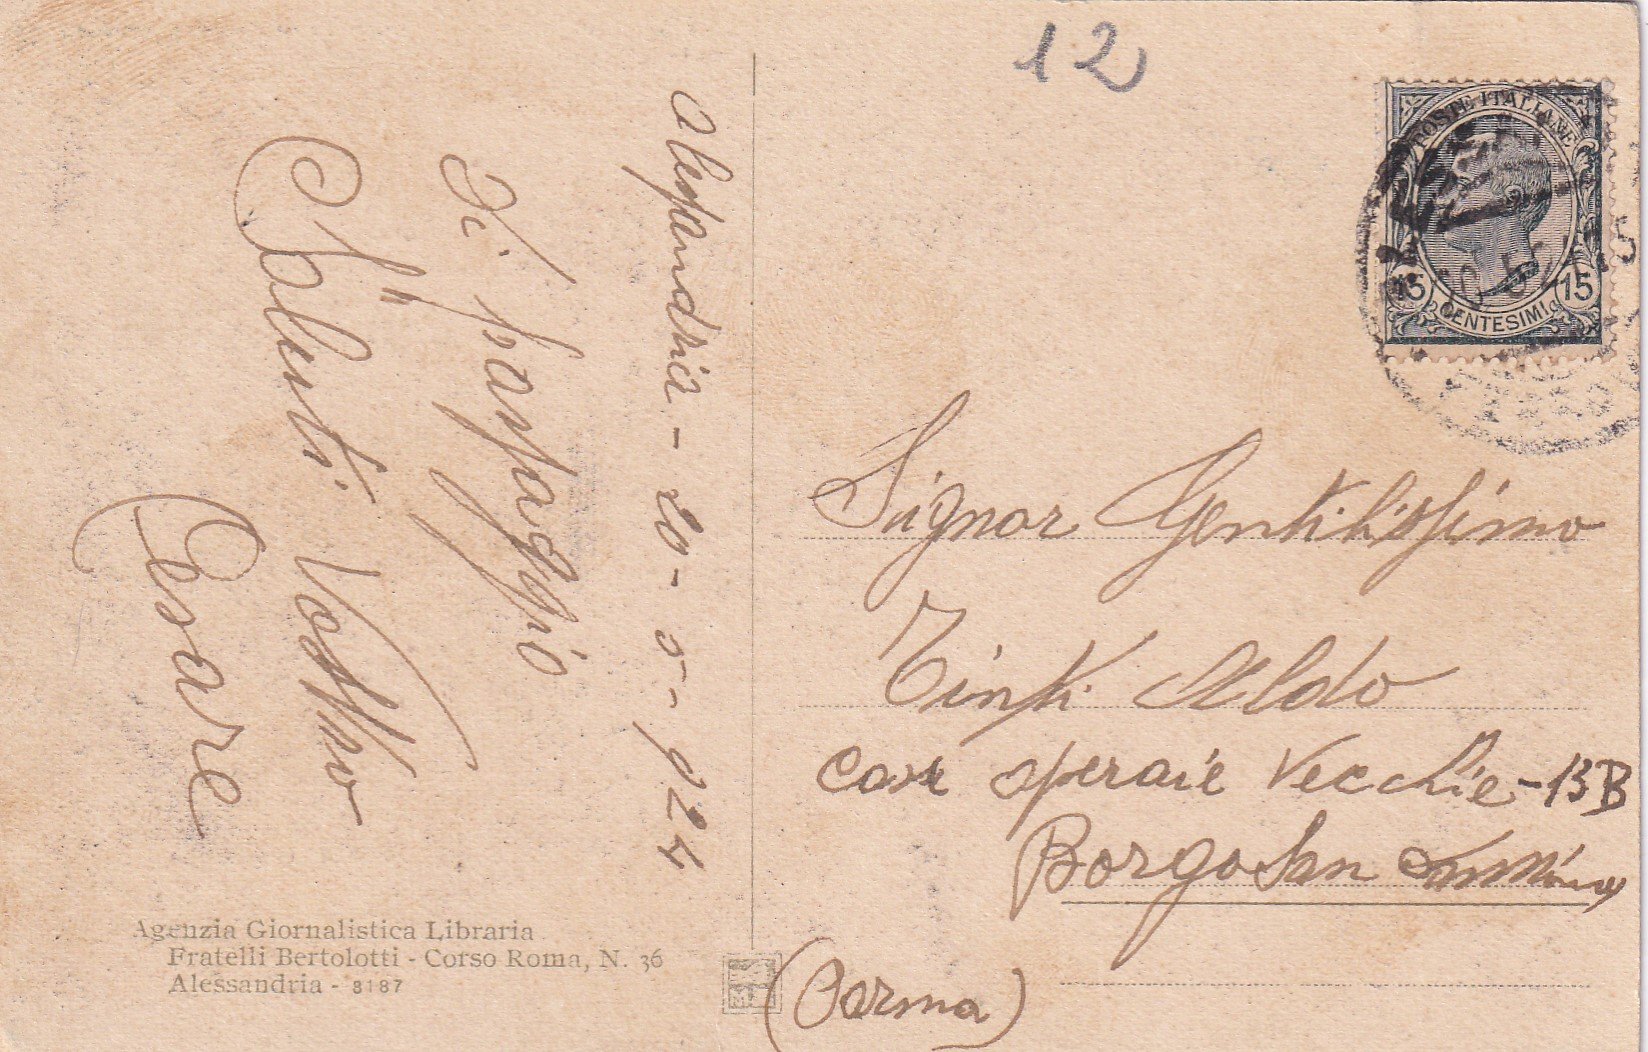 12
Alessandria - 20 - 5 - 924
Di passaggio
Saluti Vostro
Cesare
Agenzia Giornalistica Libraria
Fratelli Bertolotti - Corso Roma, N. 36
Alessandria - 8187
POSTE ITALIANE
15 15
CENTESIMI
Signor Gentilissimo
Tinti Aldo
case operaie Vecchie - 13B
Borgo San
(Parma)